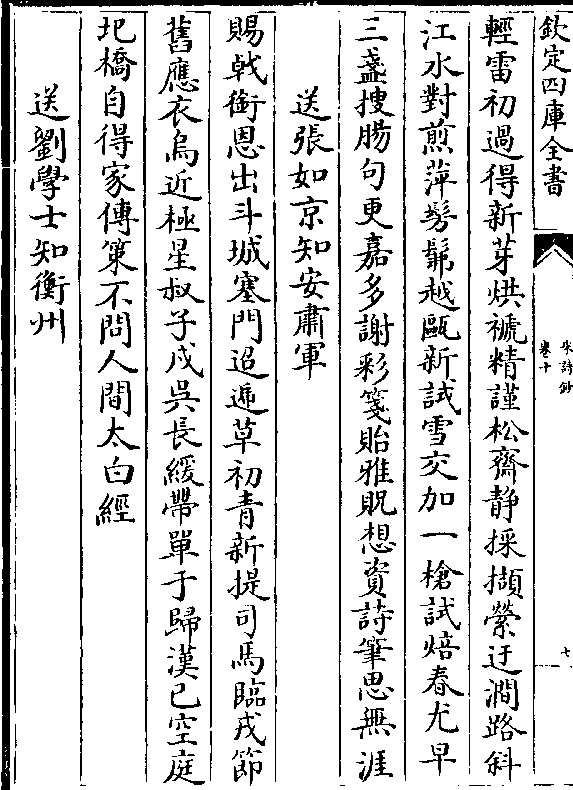 欽定四庫全書
宋詩鈔
卷十
七
輕雷初過得新芽烘褫精謹松齋静採擷縈迂澗路斜
江水對煎萍髣髴越甌新試雪交加一槍試焙春尤早
三盞搜腸句更嘉多謝彩箋貽雅貺想資詩筆思無涯
送張如京知安肅軍
賜㦸銜恩出斗城塞門迢遞草初青新提司馬臨戎節
舊應衣烏近極星叔子戍吳長緩帶單于歸漢已空庭
圯橋自得家傳策不問人間太白經
送劉學士知衡州